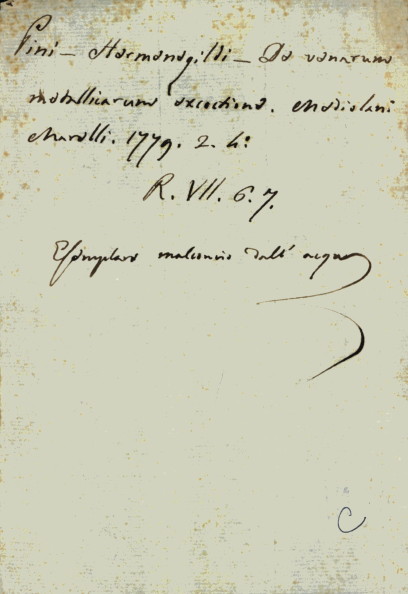 Pini - Hermenegildi - De venarum
metallicarum excoctione. Mediolani
Marelli. 1779. 2. 4:
R. VII. 6. 7.
Esemplare malconcio dall' acqua
C